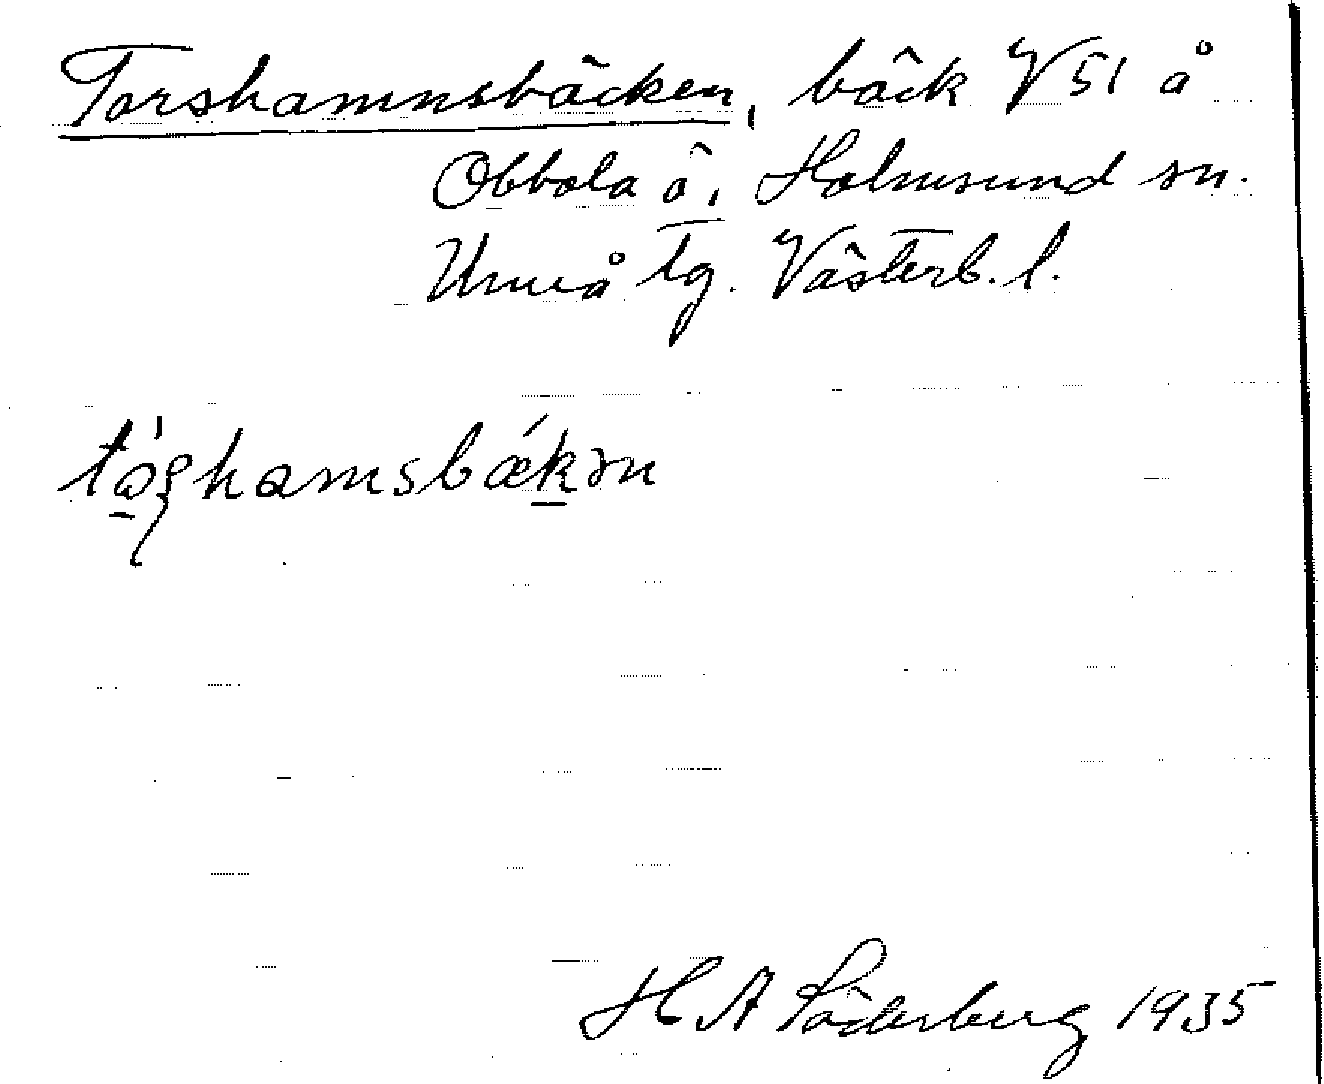 Torshamnsbäcken, bäck V 51 å
Obbola ö, Holmsund sn.
Umeå tg. Västerb. l.
tó̱ʂhamsbǽḵən
H A Söderberg 1935